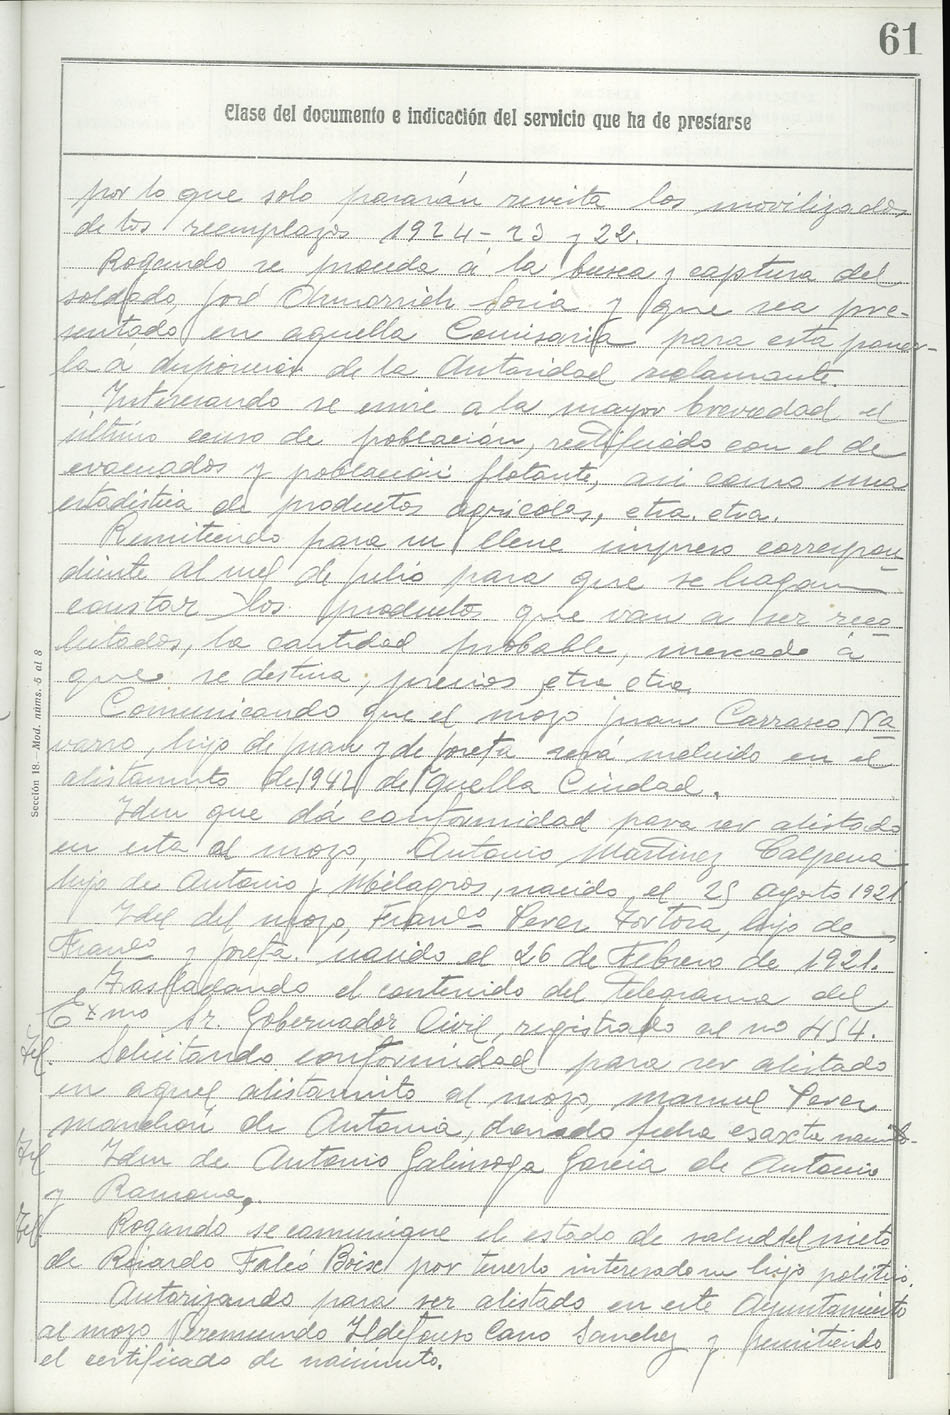 61
Clase del documento e indicación del servicio que ha de prestarse
por lo que solo pasarán revista los movilizados
de los reemplazos 1924-23 y 22.
Rogando se proceda á la busca y captura del
soldado, José Chmorrich Soria y que sea pre-
sentado en aquella Comisaria para esta poner-
la á disposición de la Autoridad reclamante.
Interesando se envie a la mayor brevedad el
ultimo censo de población, rectificado con el de
evacuados y población flotante, asi como una
estadistica de productos agricolas, etra. etra.
Remitiendo para su llene impreso correspon-
diente al mes de Julio para que se hagan
constar los productos que van a ser reco-
lectados, la cantidad probable, mercado á
que se destina, precios etra etra
Comunicando que el mozo Juan Carrasco Na
varro, hijo de Juan y de Josefa será incluido en el
alistamiento de 1942 de aquella Ciudad.
Idem que dá conformidad para ser alistado
en esta al mozo, Antonio Martinez Calpena
hijo de Antonio y Milagros, nacido el 25 agosto 1921.
Idel del mozo, Franco Perez Tortosa, hijo de
Franco y Josefa. nacido el 26 de Febrero de 1921.
Trasladando el contenido del Telegrama del
Exmo Sr. Gobernador Civil, registrado al no 454.
Tel. Solicitando conformidad para ser alistado
en aquel alistamiento al mozo, Manuel Perez
Manchón de Antonia, dando fecha exaxta
Tel Idem de Antonio Galinsoga Garcia de Antonio
y Ramona.
Tel Rogando se comunique el estado de salud del nieto
de Ricardo Falcó Boix por tenerlo interesado su hijo politico.
Autorizando para ser alistado en este Ayuntamiento
al mozo Veremundo Ildefonso Cano Sanchez y remitiendo
el certificado de nacimiento.
Sección 18.—Mod. núms. 5 al 8